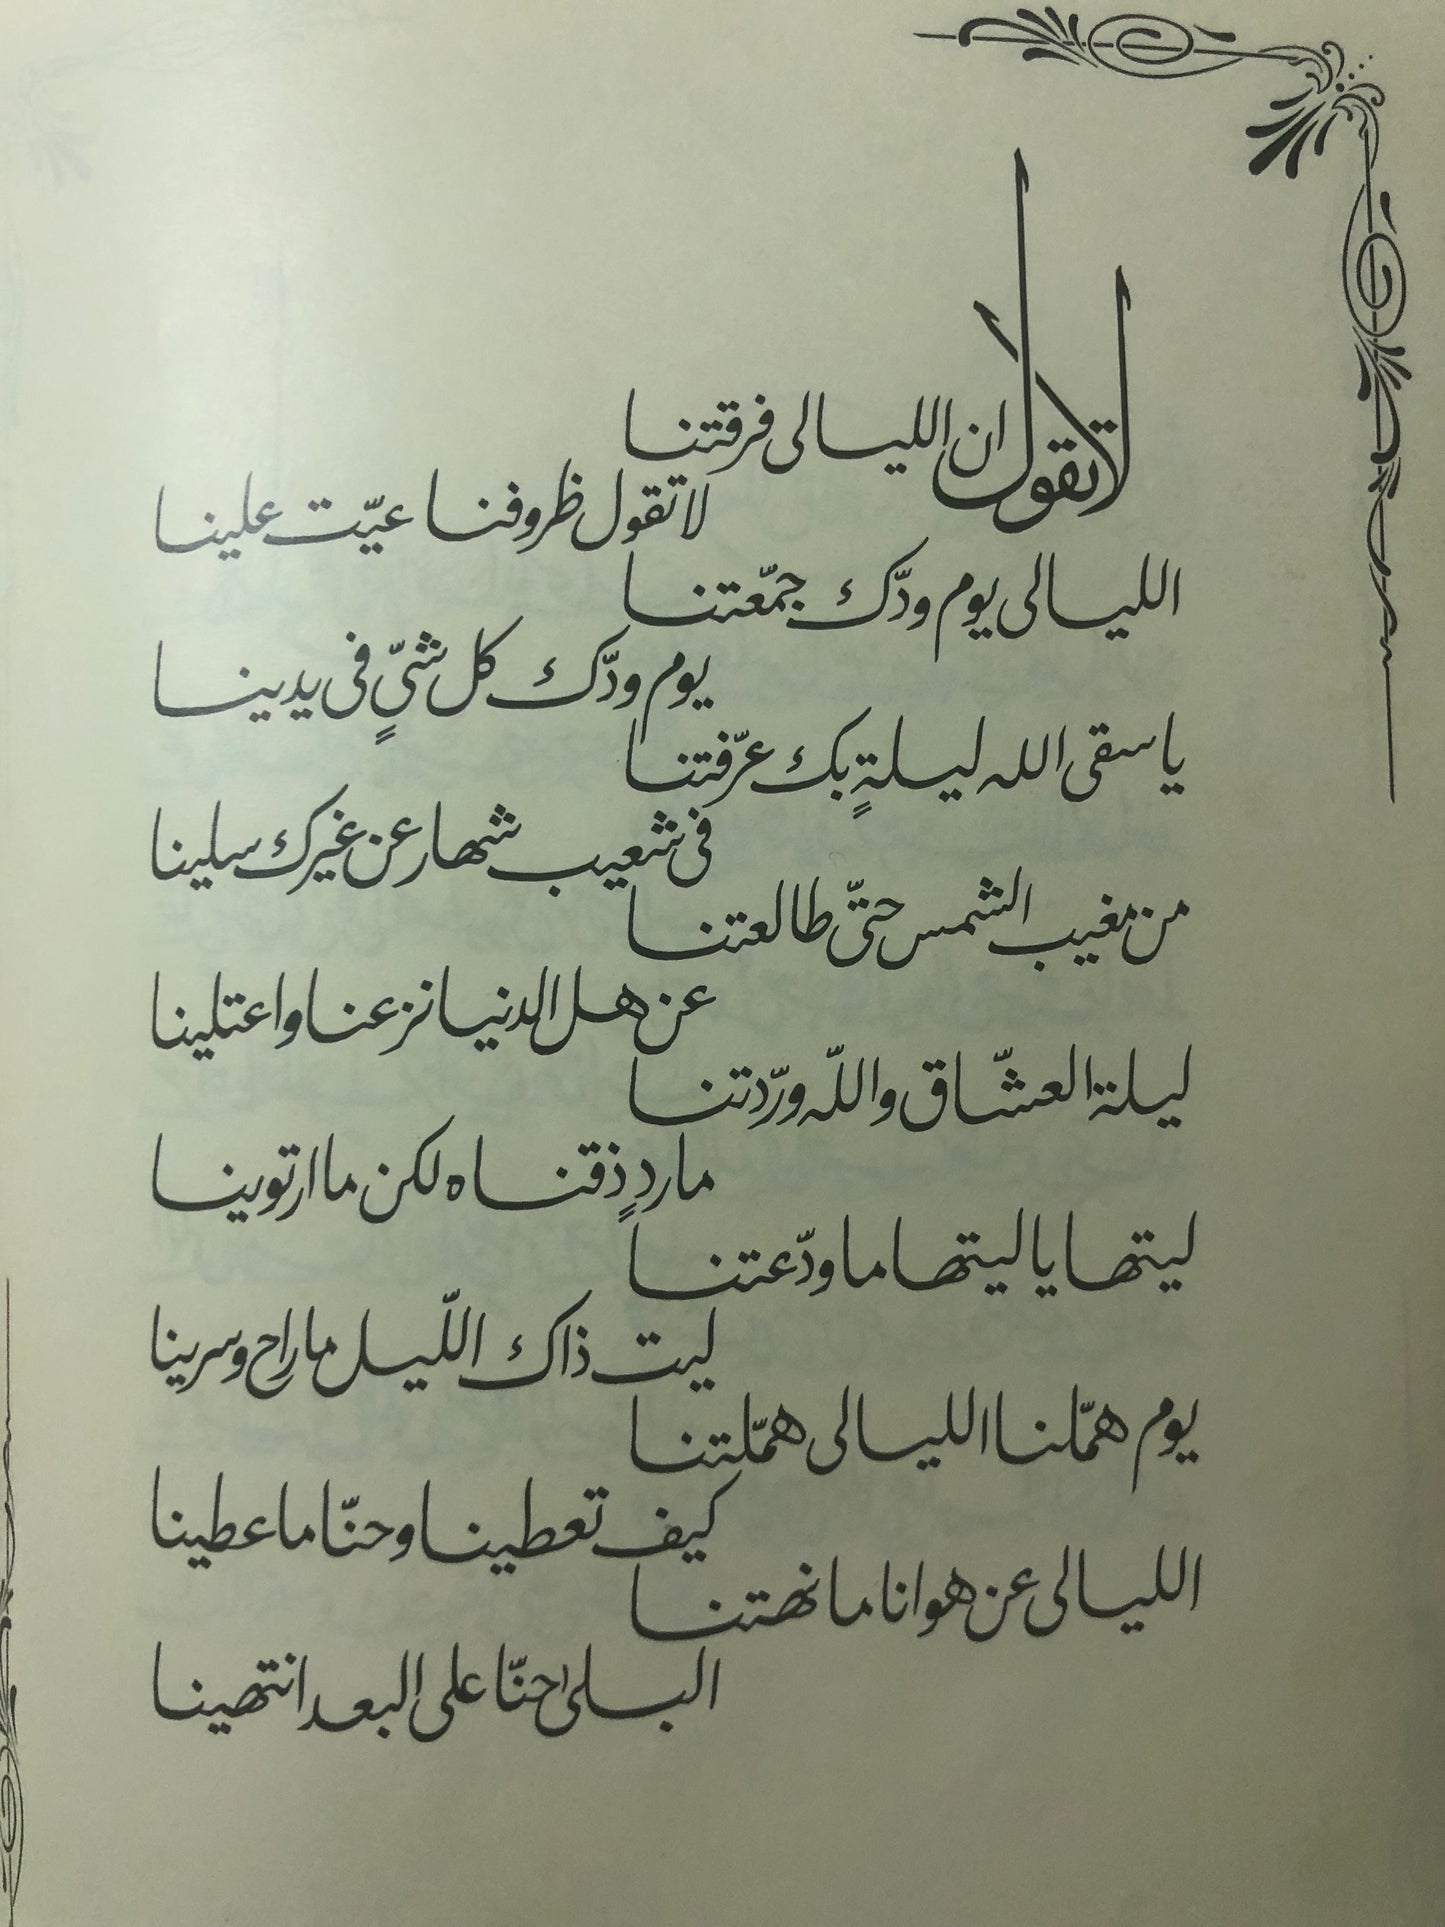 لا تقول ان الليالى فرقتنا
لا تقول ظروفنا عيّت علينا
الليالى يوم ودّك جمّعتنا
يوم ودّك كل شيٍّ فى يدينا
يا سقى الله ليلةٍ بك عرّفتنا
فى شعيب شهار عن غيرك سلينا
من مغيب الشمس حتىّ طالعتنا
عن هل الدنيا نزعنا واعتلينا
ليلة العشّاق واللّه ورّدتنا
ماردٍ ذقناه لكن ما ارتوينا
ليتها يا ليتها ما ودّعتنا
ليت ذاك اللّيل ما راح وسرينا
يوم همّلنا الليالى همّلتنا
كيف تعطينا وحنّا ما عطينا
الليالى عن هوانا ما نهتنا
البلى احنّا على البعد انتهينا